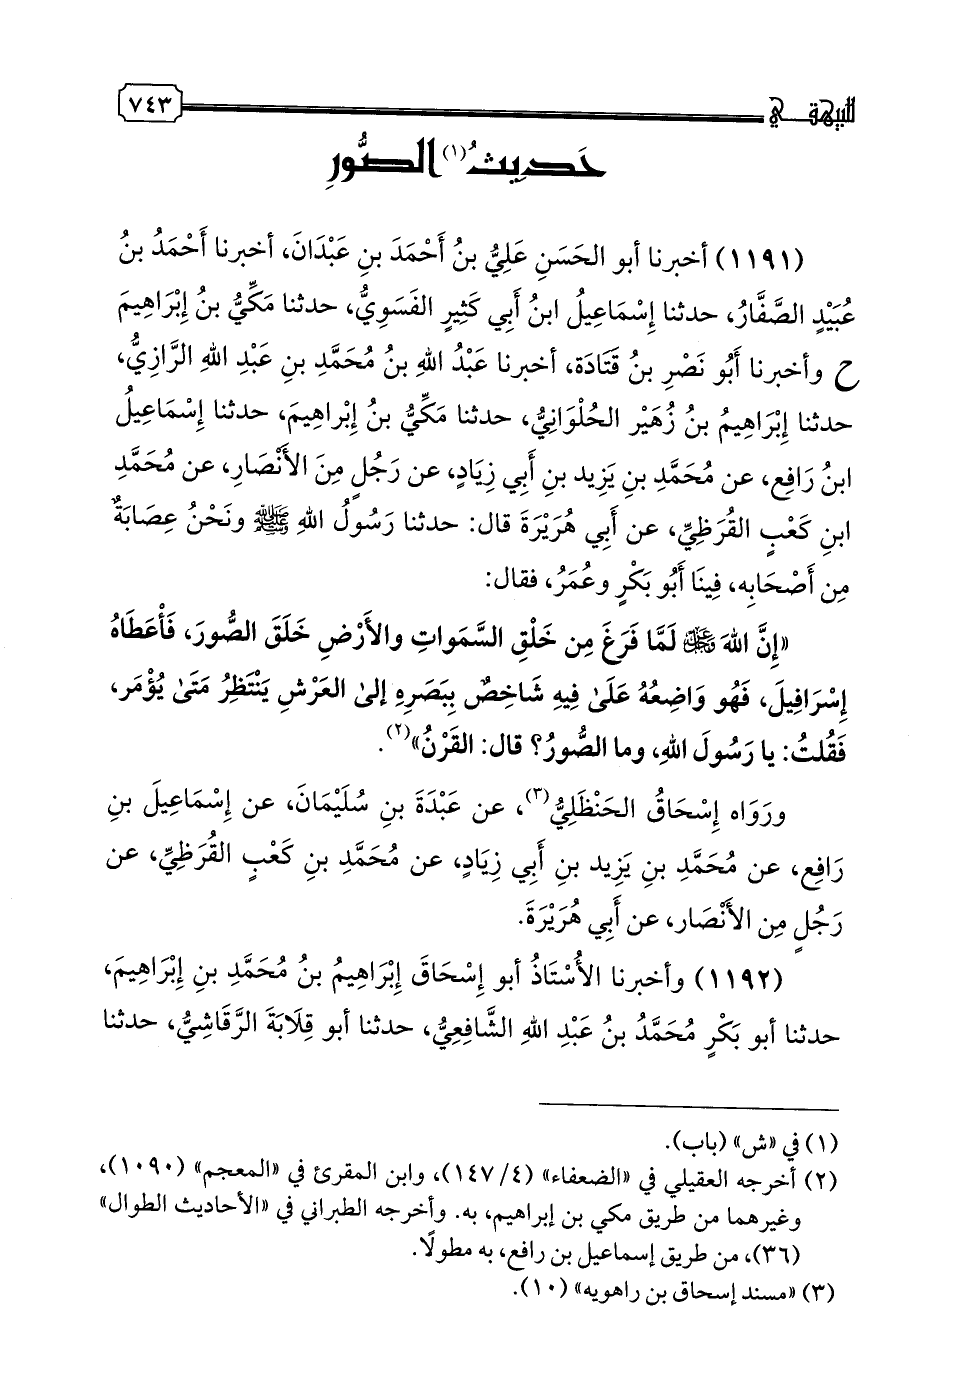 للبيهقي ٧٤٣
حَديثُ(١) الصُّورِ
(١١٩١) أخبرنا أبو الحَسَنِ عَلِيُّ بنُ أَحْمَدَ بنِ عَبْدَانَ، أخبرنا أَحْمَدُ بنُ
عُبَيْدٍ الصَّفَّارُ، حدثنا إِسْمَاعِيلُ ابنُ أَبي كَثِيرٍ الفَسَوِيُّ، حدثنا مَكِّيُّ بنُ إِبْرَاهِيمَ
ح وأخبرنا أَبُو نَصْرِ بنُ قَتَادَةَ، أخبرنا عَبْدُ اللهِ بنُ مُحَمَّدِ بنِ عَبْدِ اللهِ الرَّازِيُّ،
حدثنا إِبْرَاهِيمُ بنُ زُهَيْرٍ الحُلْوَانِيُّ، حدثنا مَكِّيُّ بنُ إِبْرَاهِيمَ، حدثنا إِسْمَاعِيلُ
ابنُ رَافِعٍ، عن مُحَمَّدِ بنِ يَزِيد بنِ أَبي زِيَادٍ، عن رَجُلٍ مِنَ الأَنْصَارِ، عن مُحَمَّدِ
ابنِ كَعْبٍ القُرَظِيِّ، عن أَبِي هُرَيْرَةَ قال: حدثنا رَسُولُ اللهِ ﷺ ونَحْنُ عِصَابَةٌ
مِن أَصْحَابِه، فِينَا أَبُو بَكْرٍ وعُمَرُ، فقال:
«إِنَّ اللهَ ﷻ لَمَّا فَرَغَ مِن خَلْقِ السَّمَواتِ والأَرْضِ خَلَقَ الصُّورَ، فَأَعْطَاهُ
إِسْرَافِيلَ، فَهُو وَاضِعُهُ عَلَىٰ فِيهِ شَاخِصٌ بِبَصَرِهِ إلىٰ العَرْشِ يَنْتَظِرُ مَتَىٰ يُؤْمَر،
فَقُلتُ: يا رَسُولَ اللهِ، وما الصُّورُ؟ قال: القَرْنُ»(٢).
ورَوَاه إِسْحَاقُ الحَنْظَلِيُّ(٣)، عن عَبْدَةَ بنِ سُلَيْمَانَ، عن إِسْمَاعِيلَ بنِ
رَافِعٍ، عن مُحَمَّدِ بنِ يَزِيد بنِ أَبي زِيَادٍ، عن مُحَمَّدِ بنِ كَعْبٍ القُرَظِيِّ، عن
رَجُلٍ مِن الأَنْصَار، عن أَبي هُرَيْرَةَ.
(١١٩٢) وأخبرنا الأُسْتَاذُ أبو إِسْحَاقَ إِبْرَاهِيمُ بنُ مُحَمَّدِ بنِ إِبْرَاهِيمَ،
حدثنا أبو بَكْرٍ مُحَمَّدُ بنُ عَبْدِ اللهِ الشَّافِعِيُّ، حدثنا أبو قِلَابَةَ الرَّقَاشِيُّ، حدثنا
(١) في «ش» (باب).
(٢) أخرجه العقيلي في «الضعفاء» (٤/ ١٤٧)، وابن المقرئ في «المعجم» (١٠٩٠)،
وغيرهما من طريق مكي بن إبراهيم، به. وأخرجه الطبراني في «الأحاديث الطوال»
(٣٦)، من طريق إسماعيل بن رافع، به مطولًا.
(٣) «مسند إسحاق بن راهويه» (١٠).